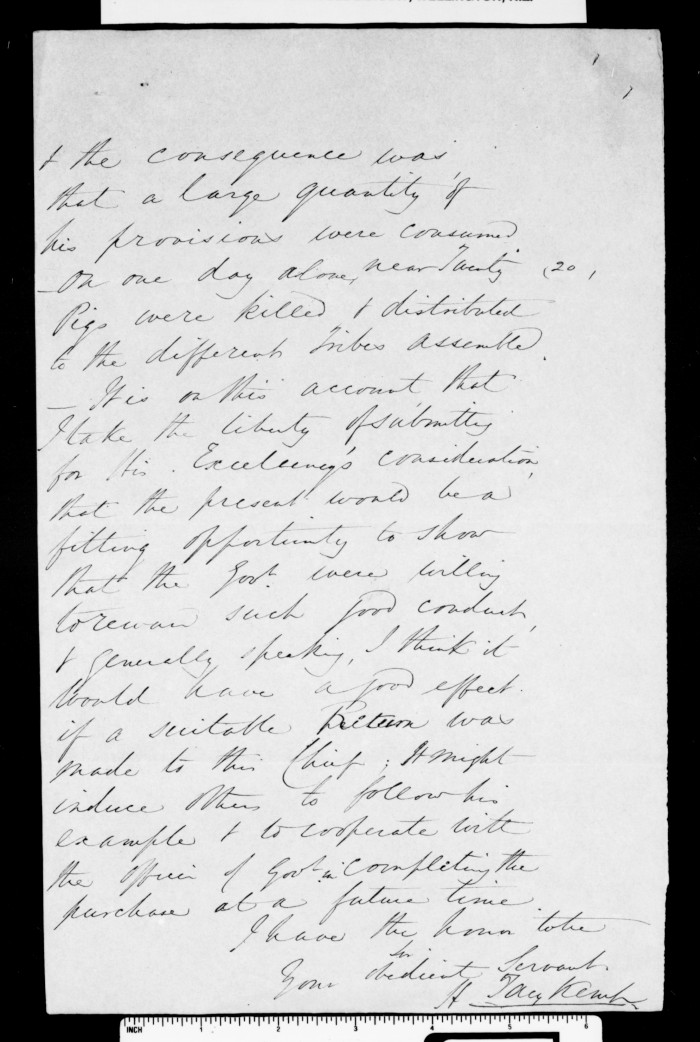 & the consequence was,
that a large quantity of
his provisions were consumed
– On one day alone, near Twenty (20,
Pigs were killed & distributed
to the different Tribes assemble.
– It is on this account, that
I take the liberty of submitting
for His Excellency's consideration,
that the present would be a
fitting opportunity to show
that the Govt. were willing
to reward such good conduct,
& generally speaking, I think it
would have a good effect.
if a suitable Return was
made to this Chief; It might
induce others to follow his
example & to cooperate with
the officer of Govt. in completing the
purchase at a future time.
I have the honor to be
Sir
Your obedient Servant.
H Tacy Kemp
INCH 1 2 3 4 5 6